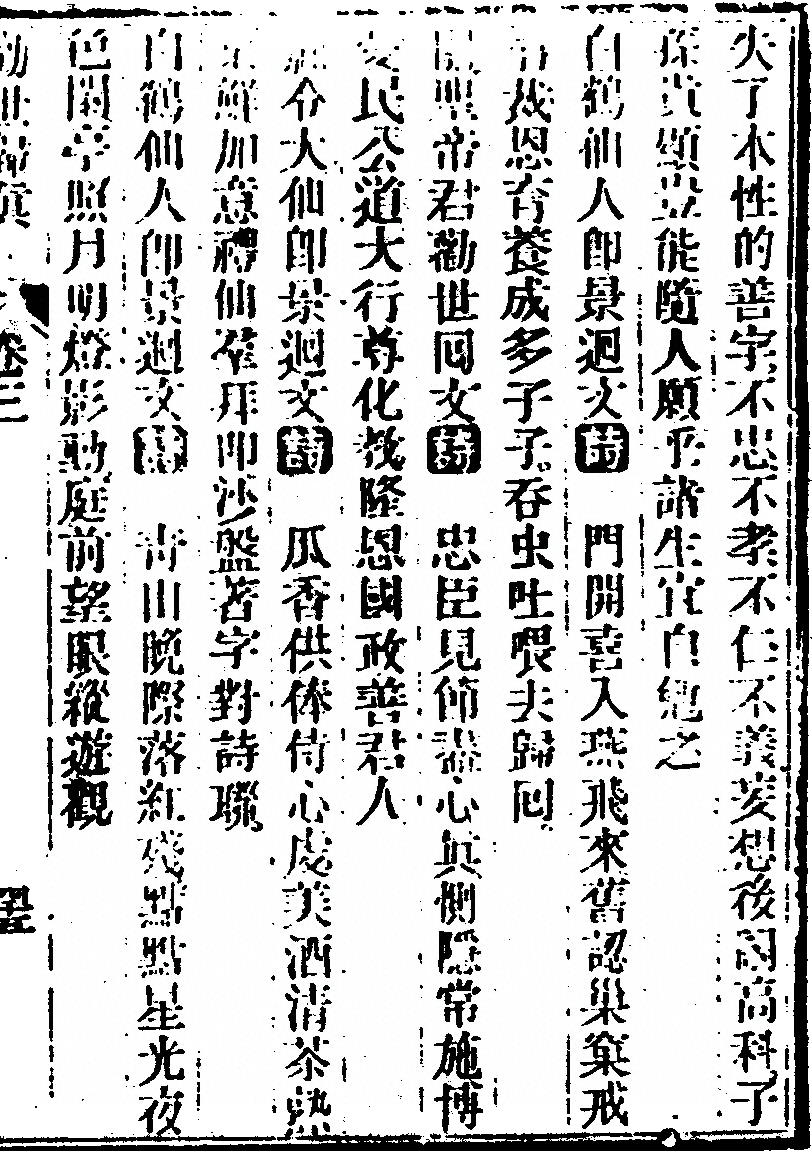 失了本性的善字不忠不孝不仁不義妄想後嗣高科子
孫貴顯豈能隨人願乎諸生宜自勉之
白鶴仙人即景迴文詩 門開喜入燕飛來舊認巢窠戒
栽恩育養成多子子吞虫吐喂夫歸回
聖帝君勸世回文詩 忠臣見節盡心真惻隱常施博
愛民公道大行尊化教隆恩國政善君人
令大仙即景迴文詩 瓜香供俸侍心虔美酒清茶熟
鮮加意禱仙羣拜叩沙盤著字對詩聯
白鶴仙人即景迴文詩 青山晚際落紅殘點點星光夜
色闌亭照月明燈影動庭前望眼縱遊觀
卷三